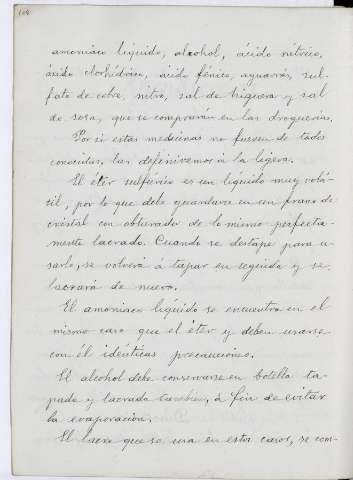 amoniaco líquido, alcohol, ácido nítrico,
ácido clorhídrico, ácido fénico, aguarrás, sul-
fato de cobre, nitro, sal de higuera y sal
de sosa, que se comprarán en las droguerías.
Por si estas medicinas no fuesen de todos
conocidas, las definiremos á la ligera.
El éter sulfúrico es un líquido muy volá-
til, por lo que debe guardarse en un frasco de
cristal con obturador de lo mismo perfecta-
mente lacrado. Cuando se destape para u-
sarlo, se volverá á tapar en seguida y se
lacrará de nuevo.
El amoniaco líquido se encuentra en el
mismo caso que el éter y deben usarse
con él idénticas precauciones.
El alcohol debe conservarse en botella ta-
pada y lacrada también, á fin de evitar
la evaporación.
El lacre que se usa en estos casos, se com-